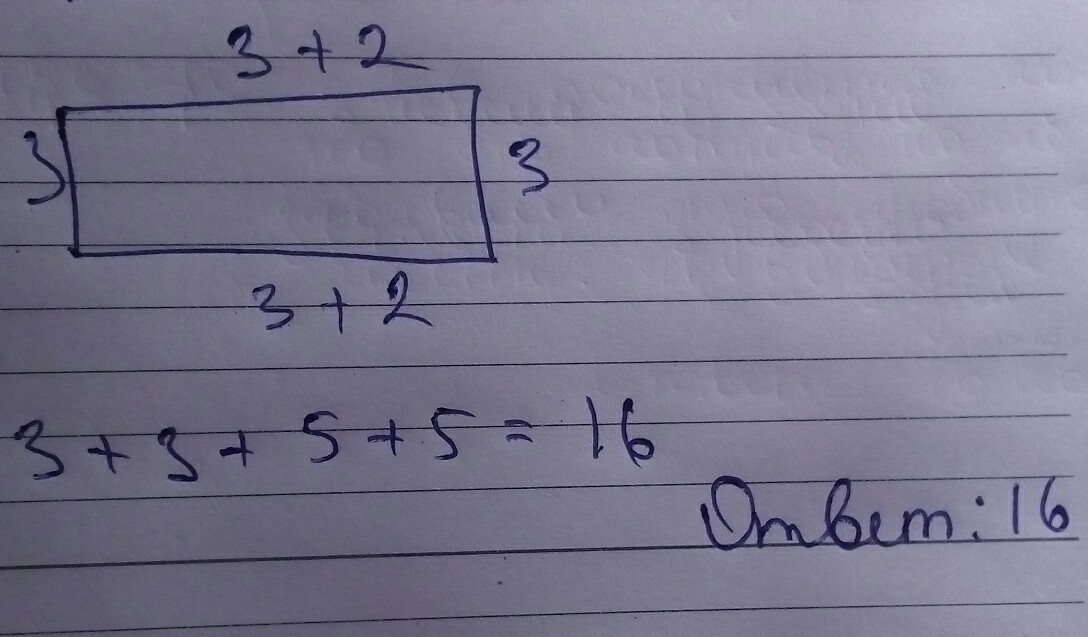 3 + 2
3
3
3 + 2
3 + 3 + 5 + 5 = 16
Ответ: 16